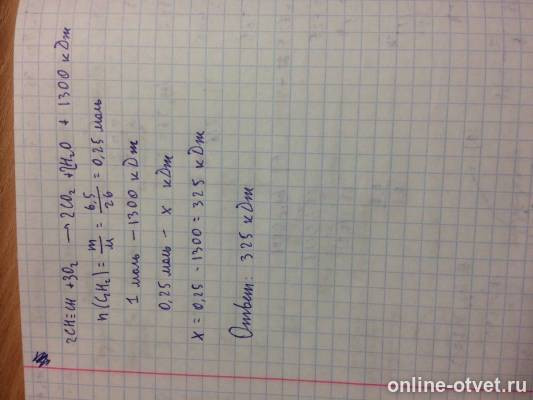 2CH≡CH + 3O₂ → 2CO₂ + 2H₂O + 1300 кДж
n(C₂H₂) = m/M = 6,5/26 = 0,25 моль
1 моль - 1300 кДж
0,25 моль - x кДж
x = 0,25 · 1300 = 325 кДж
Ответ: 325 кДж
online-otvet.ru